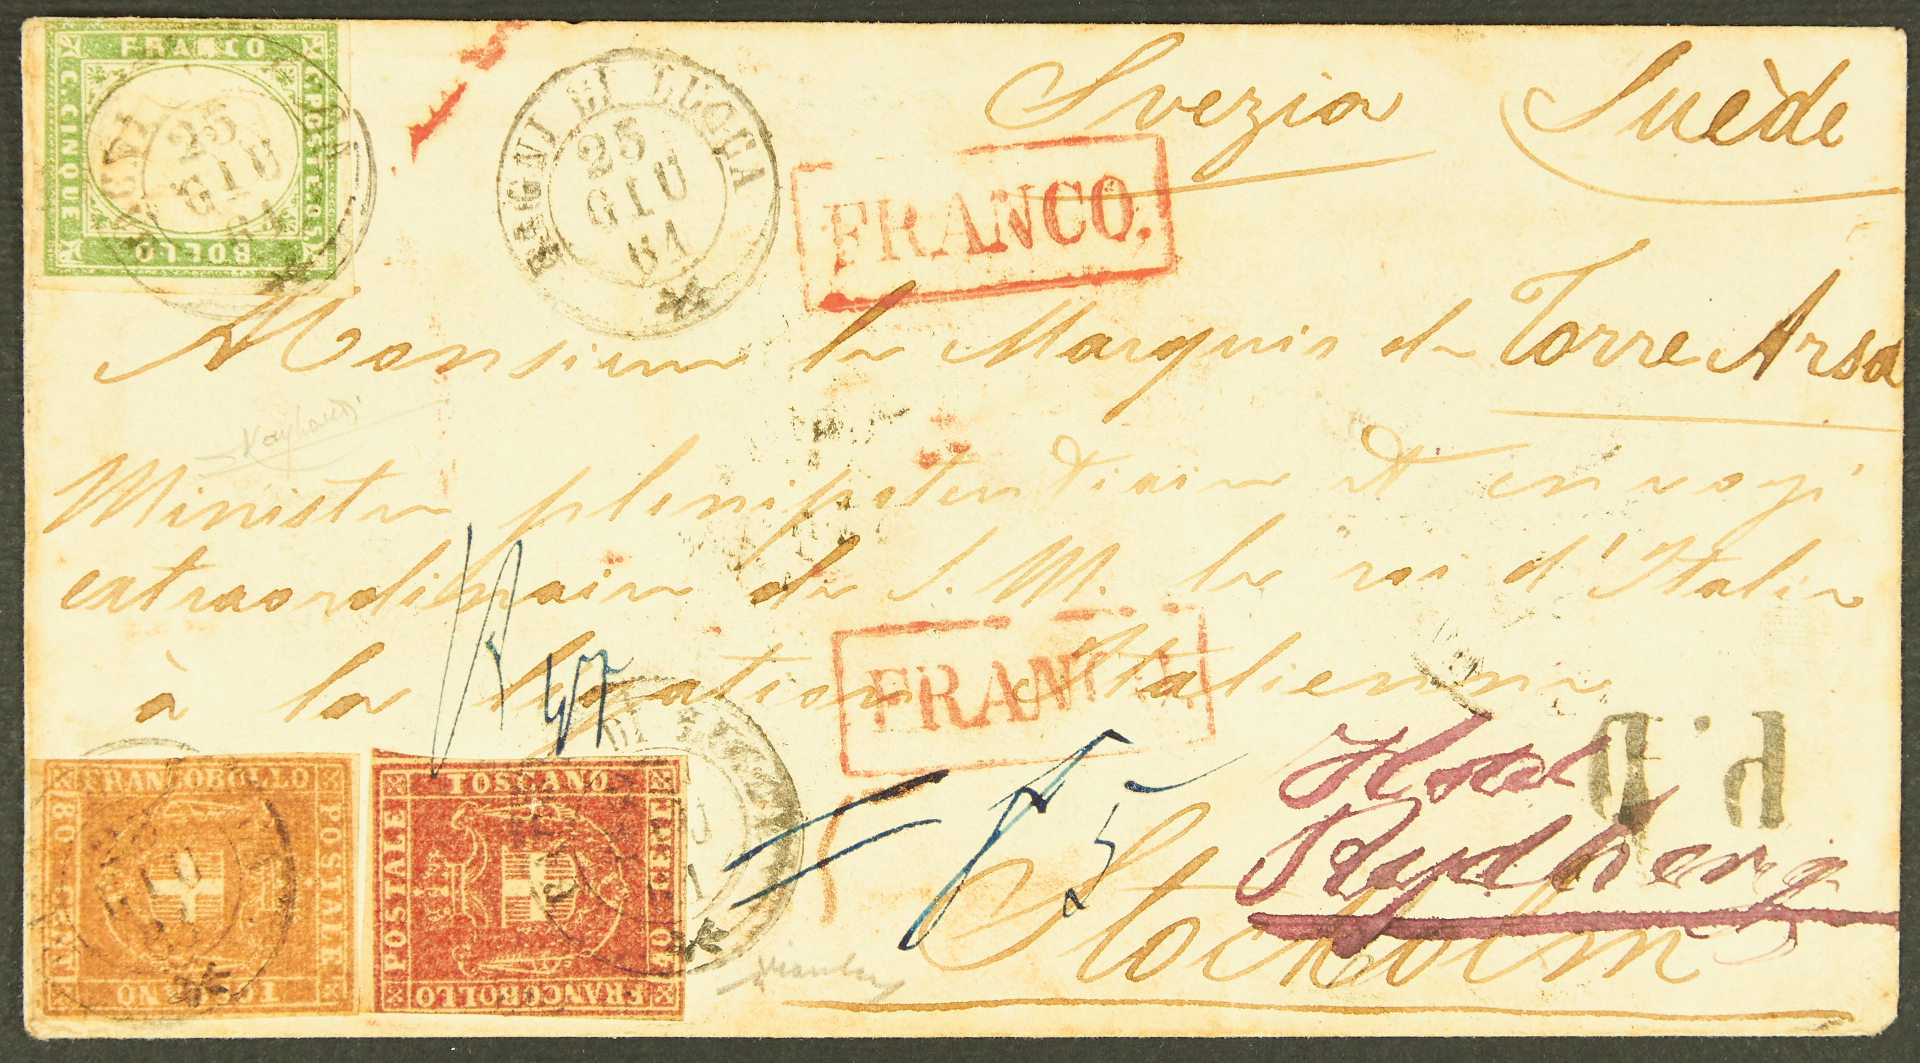 FRANCO
C. POSTE C. 05
BOLLO
C. CINQUE
BAGNI DI LUCCA
25
GIU
61
BAGNI DI LUCCA
25
GIU
61
FRANCO.
Svezia Suède
Monsieur le Marquis de Torre Arsa
Ministre plenipotentiaire et envoyé
extraordinaire de S. M. le roi d'Italie
à la légation Italienne
FRANCO
P.D
Hotel
Rydberg
Stockholm
f 5
FRANCOBOLLO
POSTALE
TOSCANO
80 CENT
TOSCANO
40 CENT
FRANCOBOLLO
POSTALE